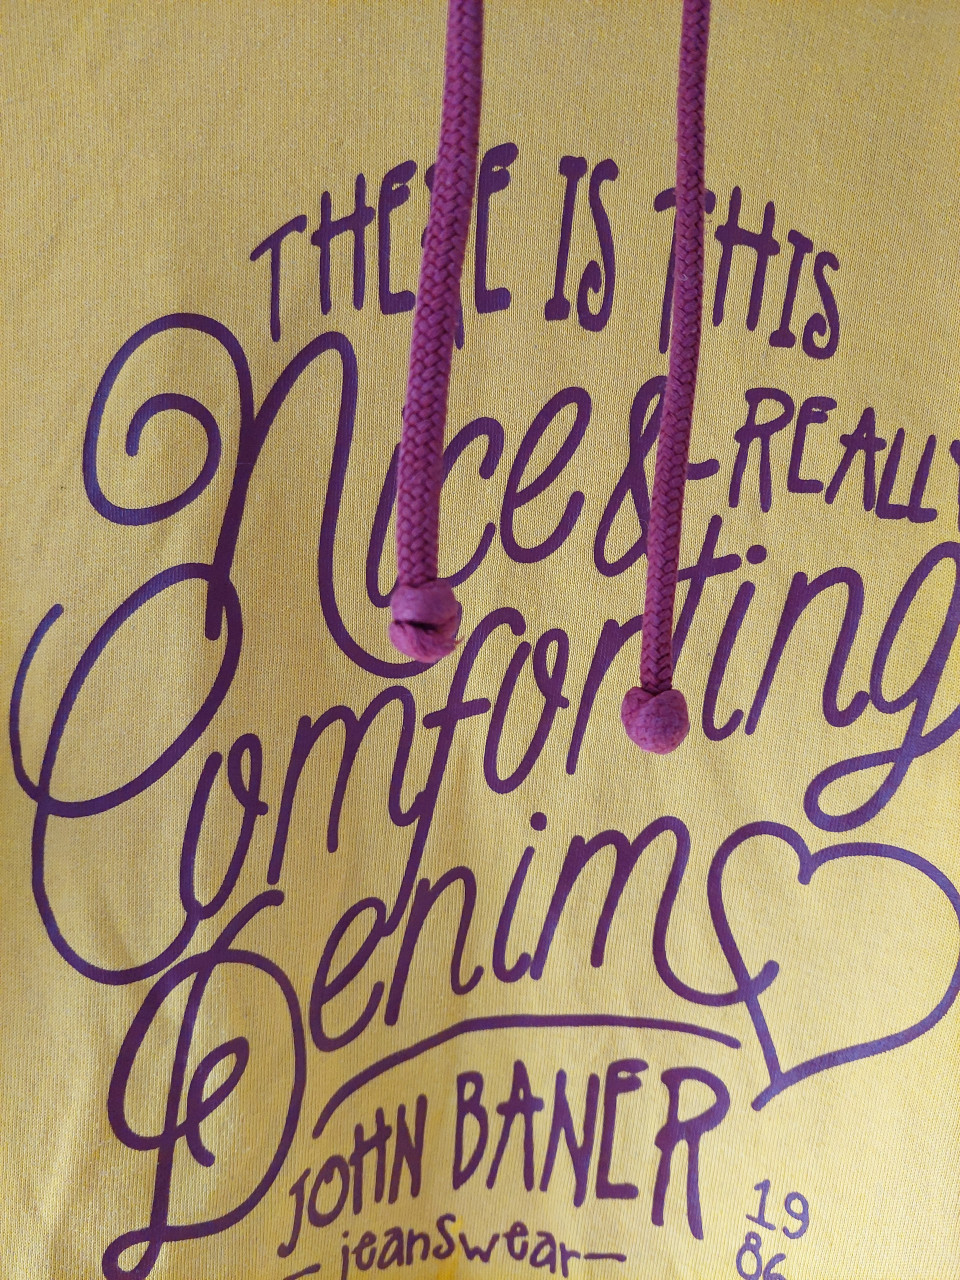 THERE IS THIS
Nice & REALLY
Comforting
Denim
JOHN BANER
- jeanswear -
19
86